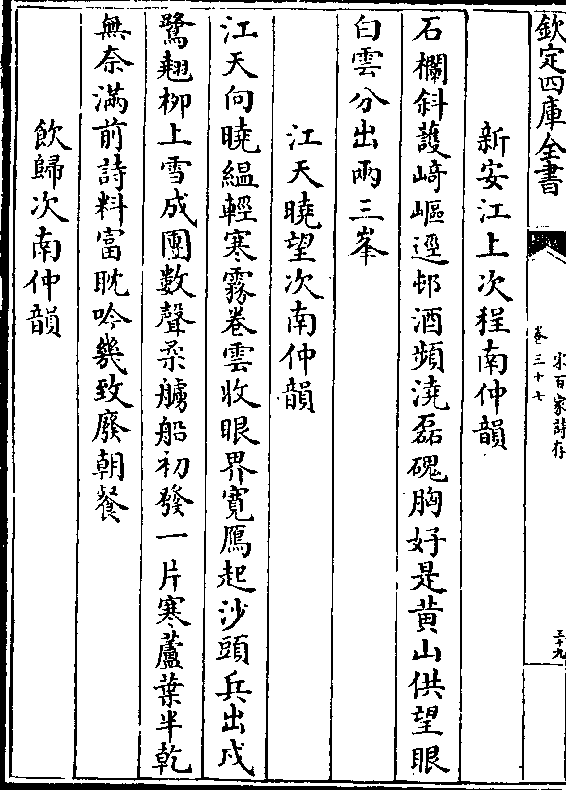 欽定四庫全書
宋百家詩存
卷三十七
三十九
新安江上次程南仲韻
石欄斜護﨑嶇逕邨酒頻澆磊磈胸好是黄山供望眼
白雲分出兩三峯
江天曉望次南仲韻
江天向曉緼輕寒霧卷雲收眼界寛鴈起沙頭兵出戍
鷺翹栁上雪成團數聲柔艣船初發一片寒蘆葉半乾
無奈滿前詩料富耽吟幾致廢朝餐
飲歸次南仲韻